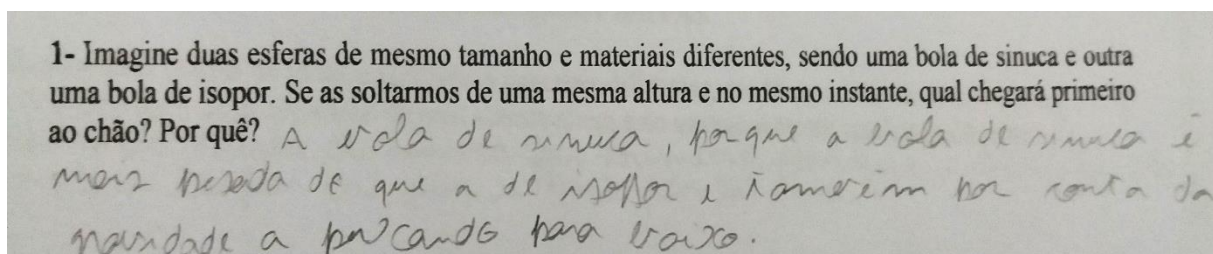 1- Imagine duas esferas de mesmo tamanho e materiais diferentes, sendo uma bola de sinuca e outra
uma bola de isopor. Se as soltarmos de uma mesma altura e no mesmo instante, qual chegará primeiro
ao chão? Por quê? A bola de sinuca, porque a bola de sinuca é
mais pesada de que a de isopor e também por conta da
gravidade a para baixo.